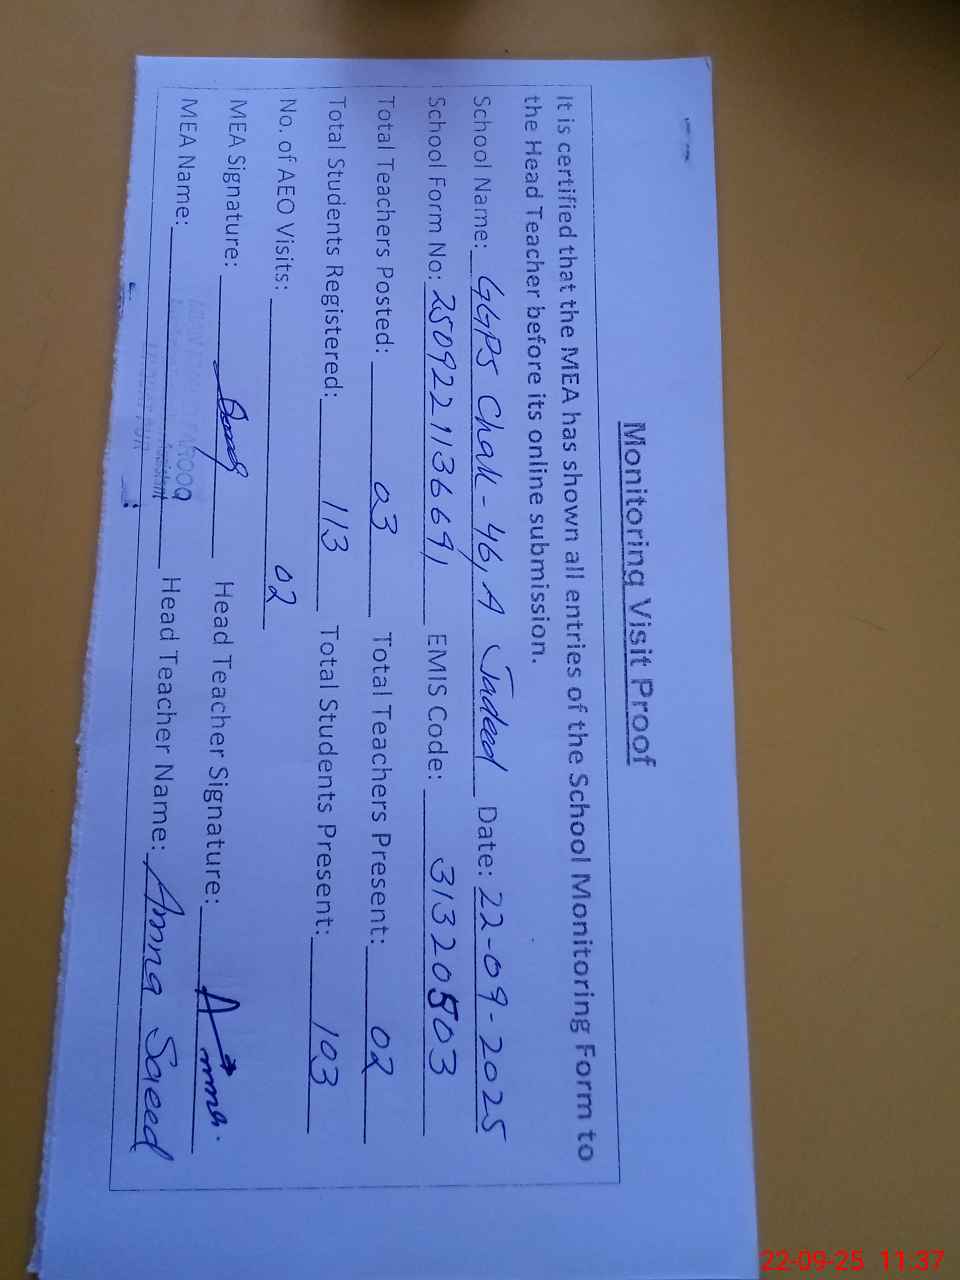 Monitoring Visit Proof
It is certified that the MEA has shown all entries of the School Monitoring Form to
the Head Teacher before its online submission.
School Name: GGPS Chak-46, A Jadeed Date: 22-09-2025
School Form No: 2509221136691 EMIS Code: 31320503
Total Teachers Posted: 03 Total Teachers Present: 02
Total Students Registered: 113 Total Students Present: 103
No. of AEO Visits: 02
MEA Signature: Head Teacher Signature:
MEA Name: FAROOQ Head Teacher Name: Amna Saeed
Assistant
22-09-25 11:37